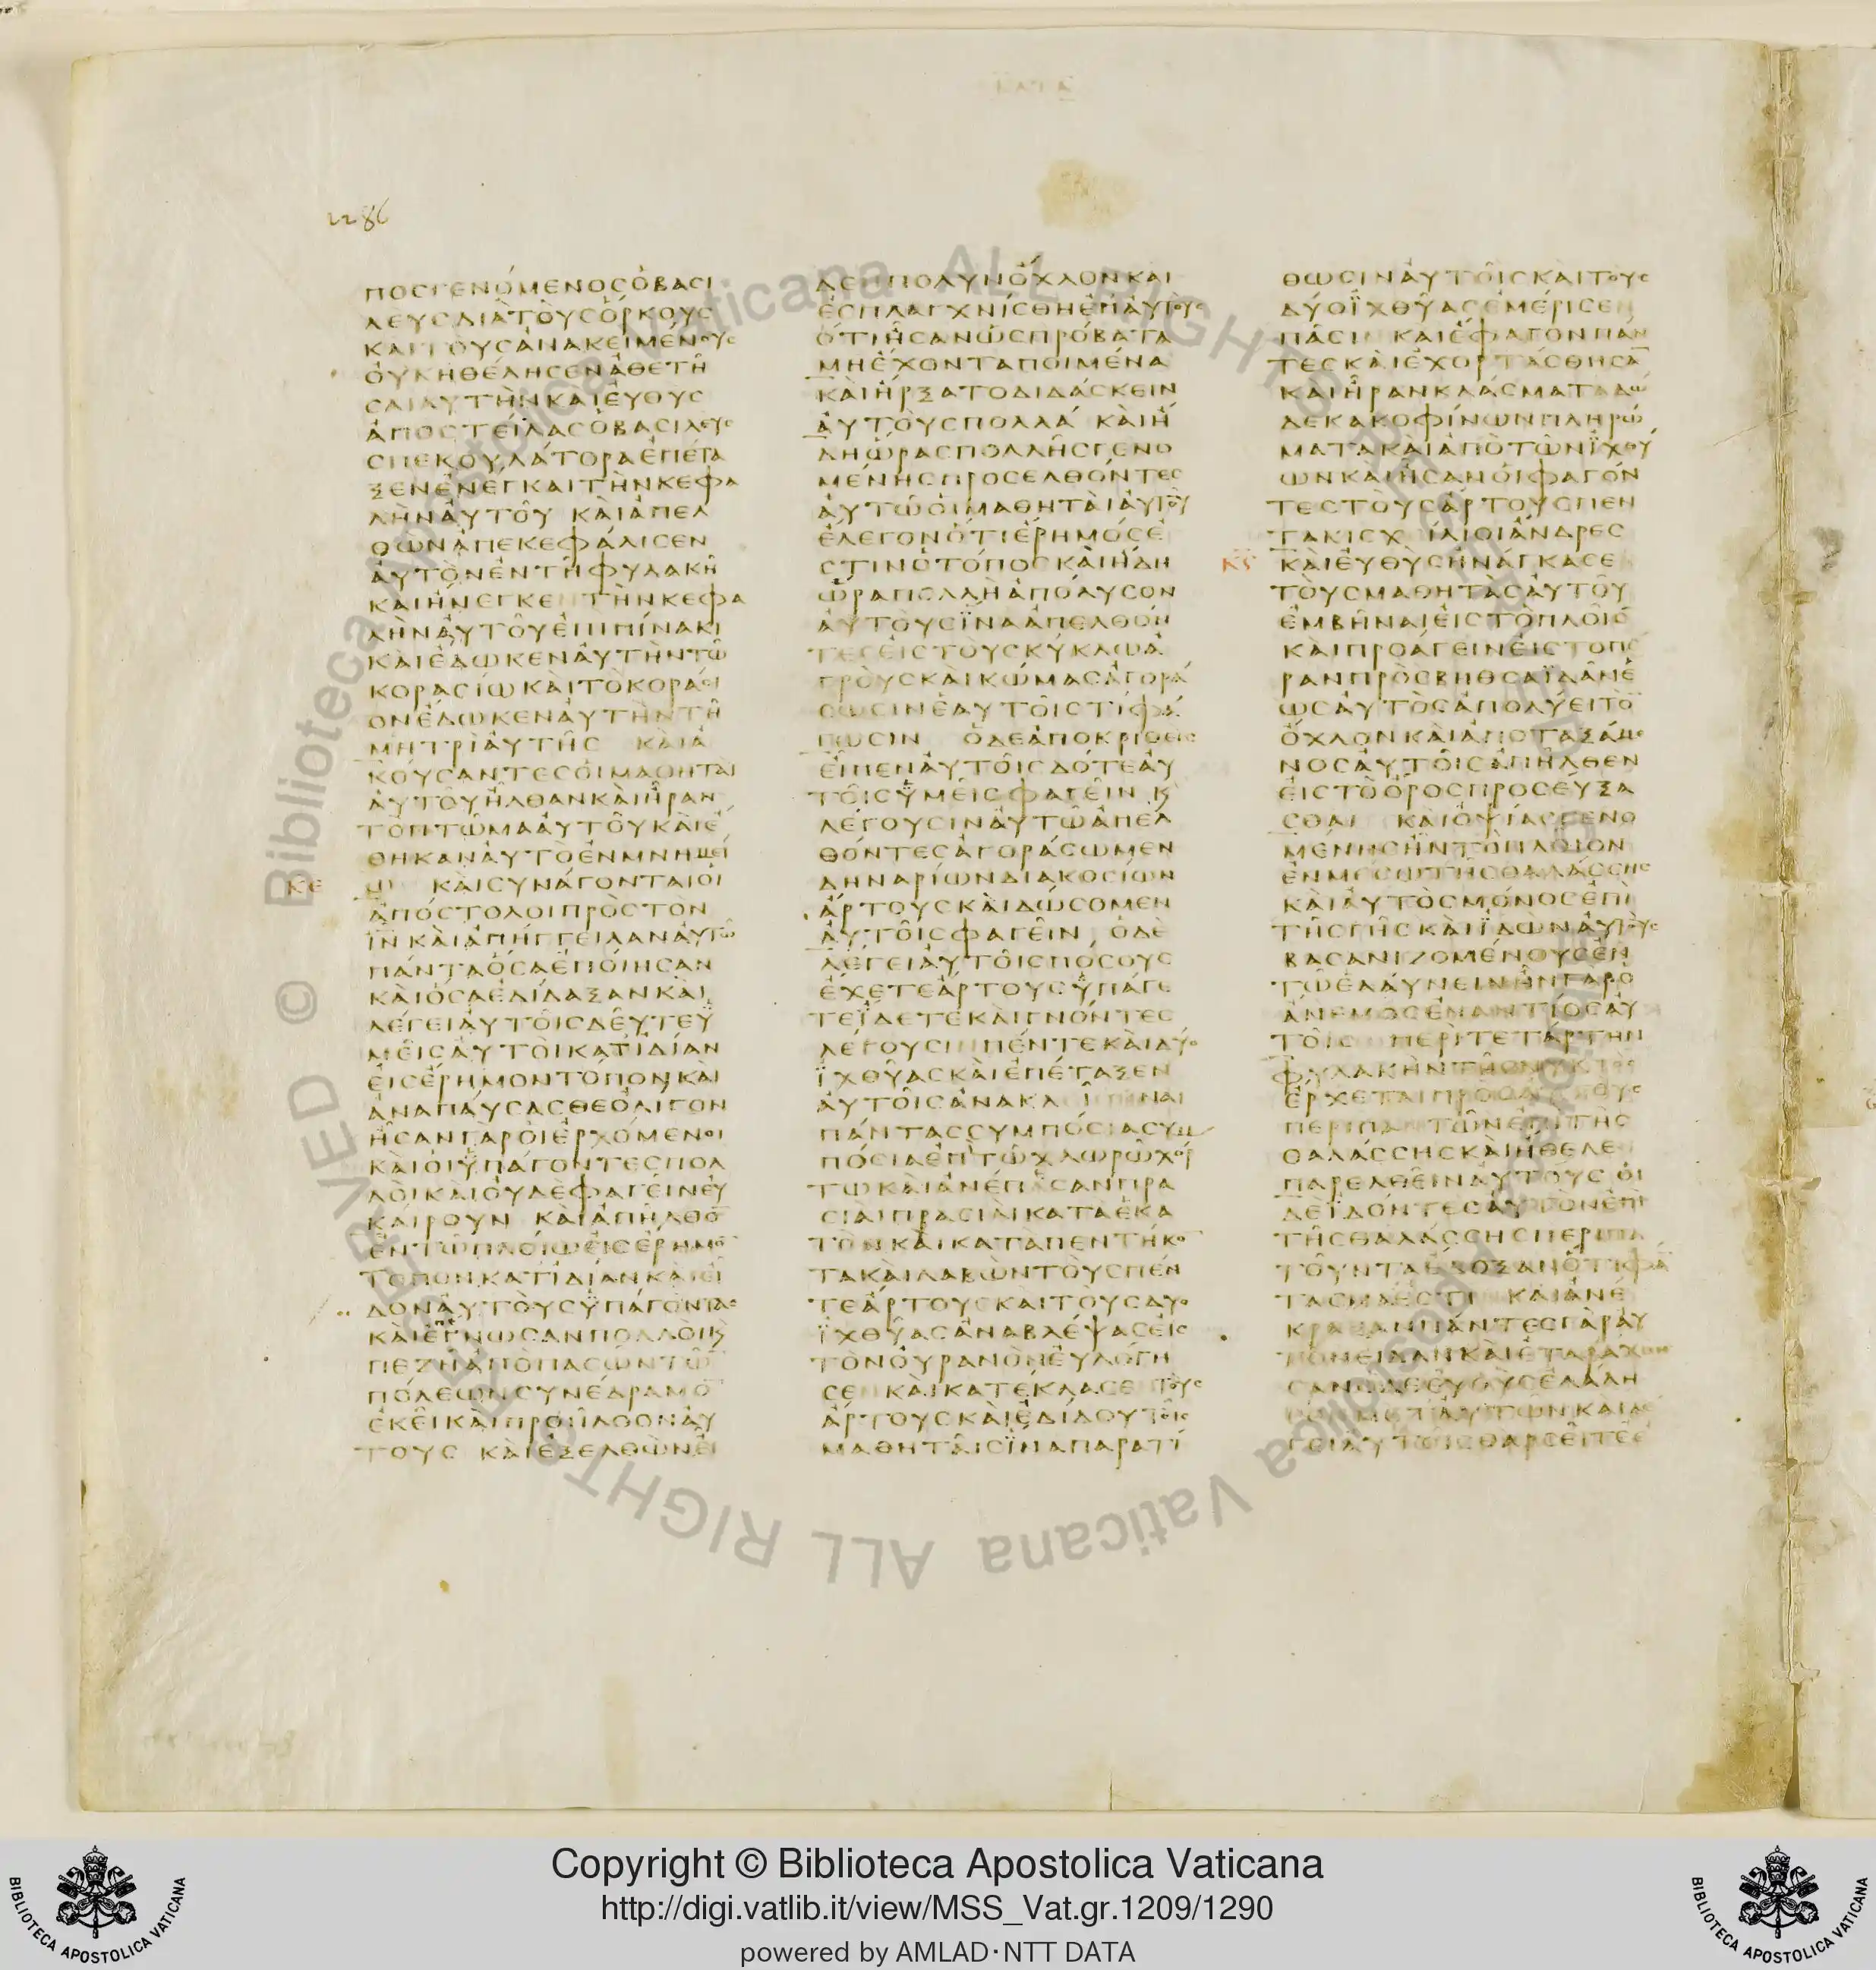 ΚΑΤΑ
1286
ΠΟΣΓΕΝΌΜΕΝΟΣὉΒΑΣΙ
ΛΕΥΣΔΙᾺΤΟῪΣὍΡΚΟΥΣ
ΚΑΙΤΟΥΣἈΝΑΚΕΙΜΈΝΟΥΣ
ΟΥΚΗΘΈΛΗΣΕΝἈΘΕΤΗ͂
ΣΑΙΑΥΤῊΝΚΑΙΕΥΘΥΣ
ἈΠΟΣΤΕΊΛΑΣὉΒΑΣΙΛΕΥΣ
ΣΠΕΚΟΥΛΆΤΟΡΑἘΠΈΤΑ
ΞΕΝἘΝΈΓΚΑΙΤΗΝΚΕΦΑ
ΛῊΝΑΥΤΟΥ͂ ΚΑῚἈΠΕΛ
ΘῺΝἈΠΕΚΕΦΆΛΙΣΕΝ
ΑΥΤῸΝΕΝΤΗΦΥΛΑΚΗ͂
ΚΑΙΗΝΕΓΚΕΝΤῊΝΚΕΦΑ
ΛῊΝΑΥΤΟΥ͂ἘΠΙΠΊΝΑΚΙ
ΚΑῚἜΔΩΚΕΝΑΥΤῊΝΤΩ͂
ΚΟΡΑΣΊΩΚΑῚΤΟΚΟΡΆΣΙ
ΟΝἜΔΩΚΕΝΑΥΤῊΝΤΗ͂
ΜΗΤΡῚΑΥΤΗ͂Σ ΚΑῚἈ
ΚΟΎΣΑΝΤΕΣΟΙΜΑΘΗΤΑῚ
ΑΥΤΟΥ͂ΗΛΘΑΝΚΑῚΗΡΑΝ
ΤῸΠΤΩ͂ΜΑΑΥΤΟΥ͂ΚΑῚἜ
ΘΗΚΑΝΑΥΤῸΕΝΜΝΗΜΕΊ
ΚΕ Ω ΚΑῚΣΥΝΆΓΟΝΤΑΙΟΙ
ἈΠΌΣΤΟΛΟΙΠΡῸΣΤΟΝ
ΙΝ̅ΚΑῚἈΠΉΓΓΕΙΛΑΝΑΥΤΩ
ΠΆΝΤΑὍΣΑἘΠΟΊΗΣΑΝ
ΚΑῚὍΣΑἘΔΊΔΑΞΑΝΚΑΙ
ΛΈΓΕΙΑΥΤΟΙ͂ΣΔΕΥ͂ΤΕΫ
ΜΕΙ͂ΣΑΥΤΟῚΚΑΤΙΔΊΑΝ
ΕΙΣἜΡΗΜΟΝΤΟΠΟΝΚΑῚ
ἈΝΑΠΑΎΣΑΣΘΕΟΛΊΓΟΝ
ΗΣΑΝΓᾺΡΟΙἘΡΧΌΜΕΝΟΙ
ΚΑῚΟΙΫΠΆΓΟΝΤΕΣΠΟΛ
ΛΟῚΚΑῚΟΥΔῈΦΑΓΕΙΝΕΥ
ΚΑΊΡΟΥΝ ΚΑῚἈΠΗΛΘΟ̅
ΕΝΤΩΠΛΟΊΩΕΙΣἜΡΗΜΟ̅
ΤΟΠΟΝΚΑΤΙΔΊΑΝΚΑῚΕΙ
ΔΟΝΑΥΤΟῪΣΫΠΆΓΟΝΤΑΣ
ΚΑῚἜΓΝΩΣΑΝΠΟΛΛΟῚΚ
ΠΕΖΗἈΠῸΠΑΣΩ͂ΝΤΩ̅
ΠΌΛΕΩΝΣΥΝΈΔΡΑΜΟ̅
ΕΚΕΙ͂ΚΑῚΠΡΟΗΛΘΟΝΑΥ
ΤΟΥΣ ΚΑῚΕΞΕΛΘῺΝΕΙ
ΔΕΝΠΟΛΥΝΌΧΛΟΝΚΑΙ
ΕΣΠΛΑΓΧΝΊΣΘΗΕΠΑΥΤΟΥΣ
ὍΤΙΗΣΑΝΩΣΠΡΌΒΑΤΑ
ΜΗἜΧΟΝΤΑΠΟΙΜΈΝΑ
ΚΑῚΗΡΞΑΤΟΔΙΔΆΣΚΕΙΝ
ΑΥΤΟῪΣΠΟΛΛΆ ΚΑῚΗ
ΔΗΩΡΑΣΠΟΛΛΗ͂ΣΓΕΝΟ
ΜΈΝΗΣΠΡΟΣΕΛΘΌΝΤΕΣ
ΑΥΤΩ͂ΟΙΜΑΘΗΤΑῚΑΥΤΟΥ͂
ἜΛΕΓΟΝὍΤΙἜΡΗΜΌΣΕ
ΣΤΙΝΟΤΌΠΟΣΚΑῚΗΔΗ
ΩΡΑΠΟΛΛῊἈΠΌΛΥΣΟΝ
ΑΥΤΟῪΣΪΝΑἈΠΕΛΘΌΝ
ΤΕΣΕΙΣΤΟῪΣΚΎΚΛΩἈ
ΓΡΟῪΣΚΑῚΚΏΜΑΣἈΓΟΡΆ
ΣΩΣΙΝΕΑΥΤΟΙ͂ΣΤΊΦΆ
ΓΩΣΙΝ ΟΔΕἈΠΟΚΡΙΘΕΙΣ
ΕΙΠΕΝΑΥΤΟΙ͂ΣΔΌΤΕΑΥ
ΤΟΙ͂ΣΫΜΕΙ͂ΣΦΑΓΕΙ͂Ν Κ
ΛΈΓΟΥΣΙΝΑΥΤΩ͂ἈΠΕΛ
ΘΌΝΤΕΣἈΓΟΡΆΣΩΜΕΝ
ΔΗΝΑΡΊΩΝΔΙΑΚΟΣΊΩΝ
ἌΡΤΟΥΣΚΑῚΔΏΣΟΜΕΝ
ΑΥΤΟΙ͂ΣΦΑΓΕΙ͂Ν ΟΔΕ
ΛΈΓΕΙΑΥΤΟΙ͂ΣΠΌΣΟΥΣ
ἜΧΕΤΕἌΡΤΟΥΣΫΠΆΓΕ
ΤΕΪΔΕΤΕΚΑῚΓΝΌΝΤΕΣ
ΛΕΓΟΥΣΙΝΠΈΝΤΕΚΑῚΔΎΟ
ΪΧΘΎΑΣΚΑῚἘΠΈΤΑΞΕΝ
ΑΥΤΟΙ͂ΣἈΝΑΚΛΙΘΗΝΑΙ
ΠΆΝΤΑΣΣΥΜΠΌΣΙΑΣΥΜ
ΠΌΣΙΑἘΠῚΤΩ͂ΧΛΩΡΩ͂ΧΟΡ
ΤΩΚΑῚἈΝΈΠΕΣΑΝΠΡΑ
ΣΙΑΙΠΡΑΣΙΑΙΚΑΤΑΕΚΑ
ΤΟΝΚΑῚΚΑΤΑΠΕΝΤΉΚΟ̅
ΤΑΚΑῚΛΑΒῺΝΤΟῪΣΠΈΝ
ΤΕἌΡΤΟΥΣΚΑΙΤΟΥΣΔΥΟ
ΪΧΘΎΑΣἈΝΑΒΛΈΨΑΣΕΙΣ
ΤῸΝΟΥΡΑΝῸΝΕΥΛΌΓΗ
ΣΕΝΚΑῚΚΑΤΈΚΛΑΣΕΝΤΟΥΣ
ἌΡΤΟΥΣΚΑῚἘΔΊΔΟΥΤΟΙΣ
ΜΑΘΗΤΑΙ͂ΣΪΝΑΠΑΡΑΤΙ
ΘΩΣΙΝΑΥΤΟΙ͂ΣΚΑῚΤΟΥΣ
ΔΎΟΪΧΘΎΑΣΕΜΈΡΙΣΕΝ
ΠΑ͂ΣΙΝ ΚΑΙἜΦΑΓΟΝΠΑΝ
ΤΕΣΚΑῚΕΧΟΡΤΆΣΘΗΣΑ̅
ΚΑῚΗΡΑΝΚΛΆΣΜΑΤΑΔΩ
ΔΕΚΑΚΟΦΊΝΩΝΠΛΗΡΏ
ΜΑΤΑΚΑῚἈΠῸΤΩ͂ΝΪΧΘΎ
ΩΝΚΑῚΗΣΑΝΟΙΦΑΓΌΝ
ΤΕΣΤΟῪΣἌΡΤΟΥΣΠΕΝ
ΤΑΚΙΣΧΙΛΙΟΙἌΝΔΡΕΣ
ΚϚ ΚΑῚΕΥΘῪΣΗΝΆΓΚΑΣΕ
ΤΟῪΣΜΑΘΗΤᾺΣΑΥΤΟΥ͂
ΕΜΒΗ͂ΝΑΙΕΙΣΤῸΠΛΟΙ͂Ο̅
ΚΑῚΠΡΟΆΓΕΙΝΕΙΣΤΟΠΕ
ΡΑΝΠΡῸΣΒΗΘΣΑΪΔᾺΝἝ
ΩΣΑΥΤῸΣἈΠΟΛΎΕΙΤΟ̅
ΌΧΛΟΝΚΑῚἈΠΟΤΑΞΆΜΕ
ΝΟΣΑΥΤΟΙ͂ΣἈΠΗΛΘΕΝ
ΕΙΣΤῸΌΡΟΣΠΡΟΣΕΎΞΑ
ΣΘΑΙ ΚΑῚΟΨΊΑΣΓΕΝΟ
ΜΈΝΗΣΗΝΤῸΠΛΟΙΟΝ
ΕΝΜΕΣΩΤΗΣΘΑΛΆΣΣΗΣ
ΚΑῚΑΥΤῸΣΜΌΝΟΣΕΠῚ
ΤΗ͂ΣΓΗ͂ΣΚΑῚΪΔῺΝΑΥΤΟΥΣ
ΒΑΣΑΝΙΖΟΜΈΝΟΥΣΕΝ
ΤΩ͂ΕΛΑΎΝΕΙΝΗΝΓᾺΡΟ
ἌΝΕΜΟΣΕΝΑΝΤΊΟΣΑΥ
ΤΟΙΣ ΠΕΡῚΤΕΤΆΡΤΗΝ
ΦΥΛΑΚῊΝΤΗΣΝΥΚΤῸΣ
ἜΡΧΕΤΑΙΠΡΟΣΑΥΤΟΥΣ
ΠΕΡΙΠΑΤΩ͂ΝΕΠῚΤΗΣ
ΘΑΛΆΣΣΗΣΚΑῚΗΘΕΛΕΝ
ΠΑΡΕΛΘΕΙ͂ΝΑΥΤΟΥΣ ΟΙ
ΔῈΪΔΌΝΤΕΣΑΥΤῸΝΕΠΙ
ΤΗ͂ΣΘΑΛΆΣΣΗΣΠΕΡΙΠΑ
ΤΟΥ͂ΝΤΑἜΔΟΞΑΝὍΤΙΦΑ̅
ΤΑΣΜΆΕΣΤΙΝ ΚΑΙἈΝΕ
ΚΡΑΞΑΝΠΆΝΤΕΣΓᾺΡΑΥ
ΤΟΝΕΙΔΑΝΚΑῚΕΤΑΡΆΧΘΗ
ΣΑΝΟΔΕΕΥΘΥΣΕΛΆΛΗ
ΣΕΝΜΕΤΑΥΤΩΝΚΑΙΛΕ
ΓΕΙΑΥΤΟΙΣΘΑΡΣΕΙΤΕΕ
© Biblioteca Apostolica Vaticana ALL RIGHTS RESERVED © Biblioteca Apostolica Vaticana ALL RIGHTS RESERVED
BIBLIOTECA APOSTOLICA VATICANA
Copyright © Biblioteca Apostolica Vaticana
http://digi.vatlib.it/view/MSS_Vat.gr.1209/1290
powered by AMLAD·NTT DATA
BIBLIOTECA APOSTOLICA VATICANA